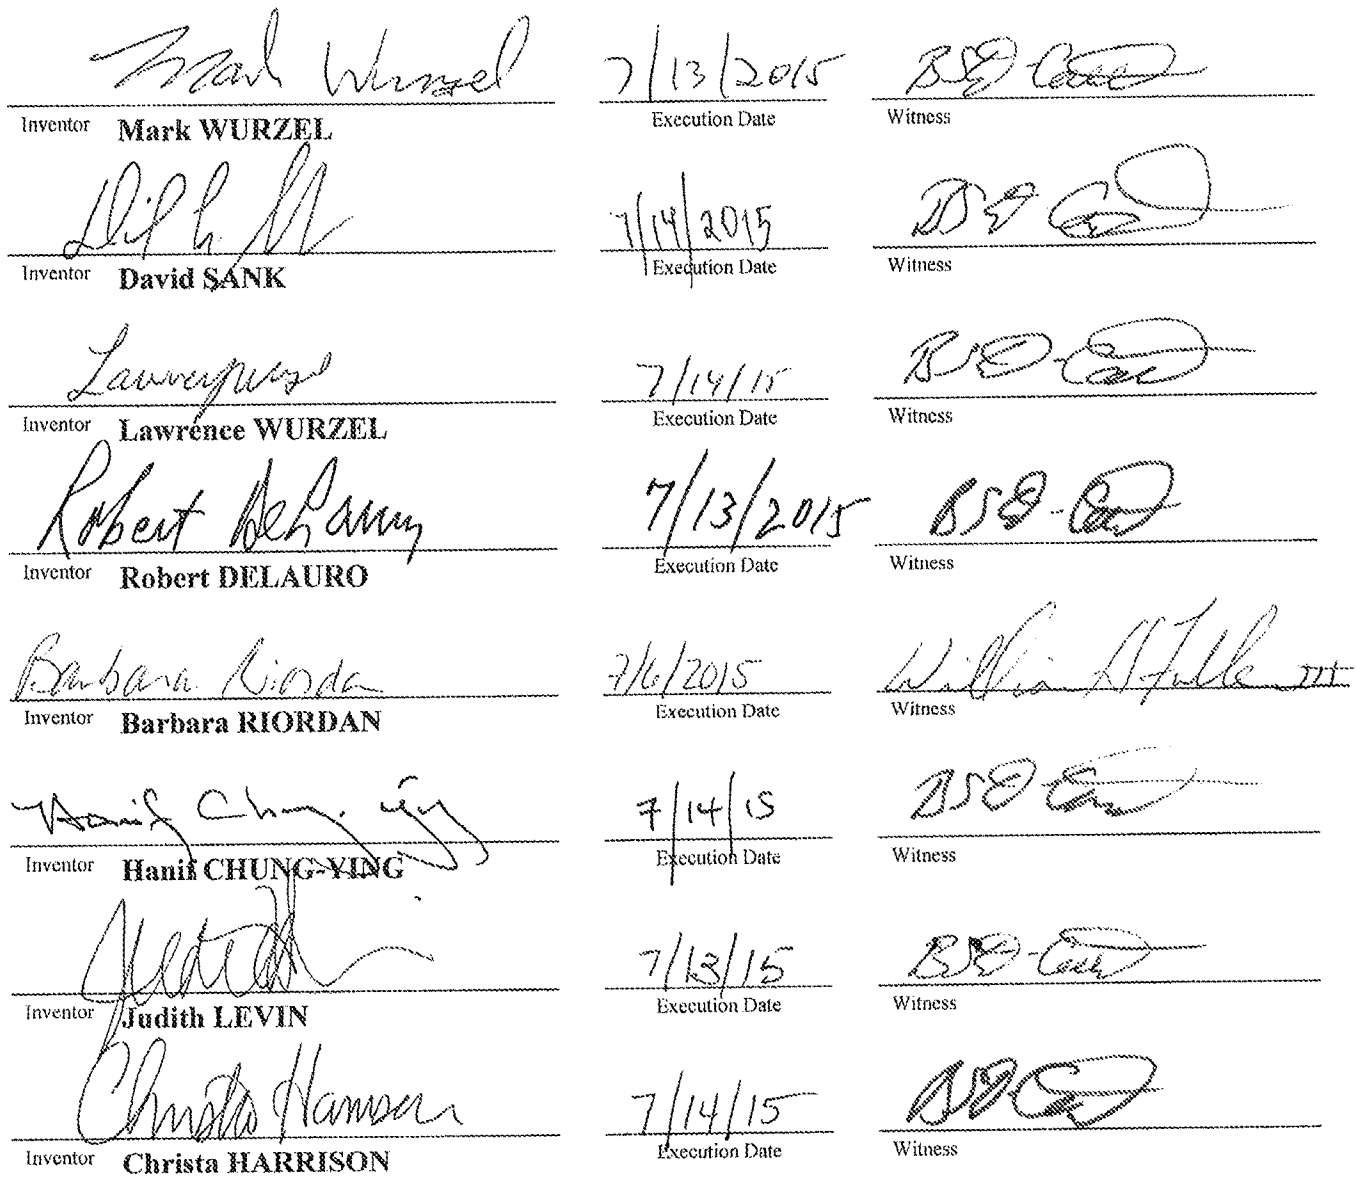 Mark Wurzel 7/13/2015
Inventor Mark WURZEL Execution Date Witness
7/14/2015
Inventor David SANK Execution Date Witness
7/14/15
Inventor Lawrence WURZEL Execution Date Witness
Robert DeLauro 7/13/2015
Inventor Robert DELAURO Execution Date Witness
Barbara Riordan 7/6/2015 William H Fuller III
Inventor Barbara RIORDAN Execution Date Witness
Hanif Chung-Ying 7/14/15
Inventor Hanif CHUNG-YING Execution Date Witness
7/13/15
Inventor Judith LEVIN Execution Date Witness
Christa Harrison 7/14/15
Inventor Christa HARRISON Execution Date Witness